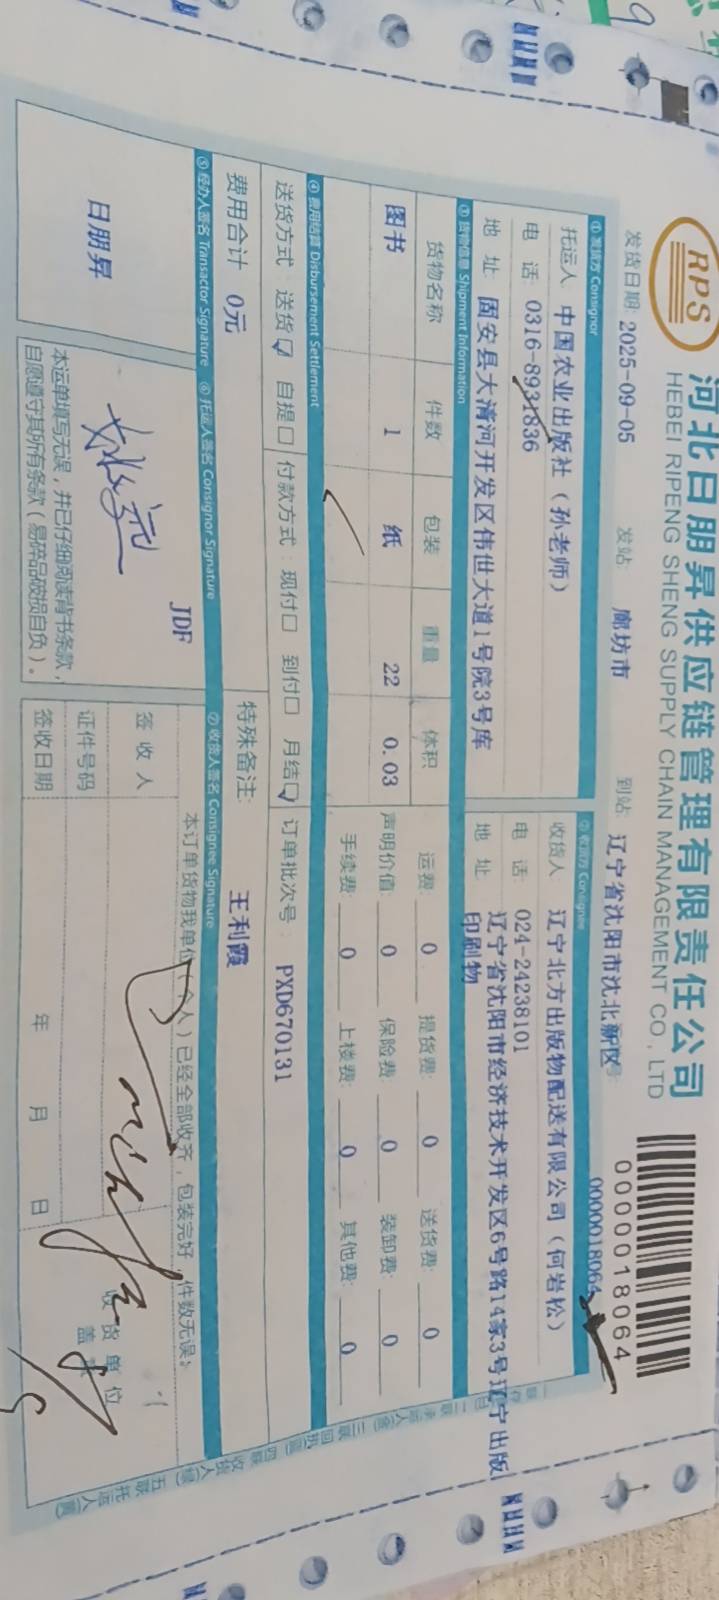 RPS
河北日朋昇供应链管理有限责任公司
HEBEI RIPENG SHENG SUPPLY CHAIN MANAGEMENT CO., LTD
0000018064
发货日期: 2025-09-05 发站: 廊坊市 到站: 辽宁省沈阳市沈北新区
0000018064
① 发货方 Consignor ② 收货方 Consignee
托运人 中国农业出版社（孙老师） 收货人 辽宁北方出版物配送有限公司（何岩松）
电 话: 0316-8931836 电 话: 024-24238101
地 址 固安县大清河开发区伟世大道1号院3号库 地 址 辽宁省沈阳市经济技术开发区6号路14家3号辽宁出版
印刷物
③ 货物信息 Shipment Information
货物名称 件数 包装 重量 体积 运费: 0 提货费: 0 送货费: 0
图书 1 纸 22 0.03 声明价值: 0 保险费 0 装卸费: 0
手续费: 0 上楼费: 0 其他费: 0
④ 费用结算 Disbursement Settlement
送货方式 送货☑ 自提☐ 付款方式: 现付☐ 到付☐ 月结☑ 订单批次号: PXD670131
费用合计 0元 特殊备注: 王利霞
⑤ 经办人签名 Transactor Signature ⑥ 托运人签名 Consignor Signature ⑦ 收货人签名 Consignee Signature
JDF
本订单货物我单位（个人）已经全部收齐，包装完好，件数无误。
日朋昇
签 收 人
证件号码
收货单位
盖
本运单填写无误，并已仔细阅读背书条款，
自愿遵守其所有条款（易碎品破损自负）。
签收日期 年 月 日